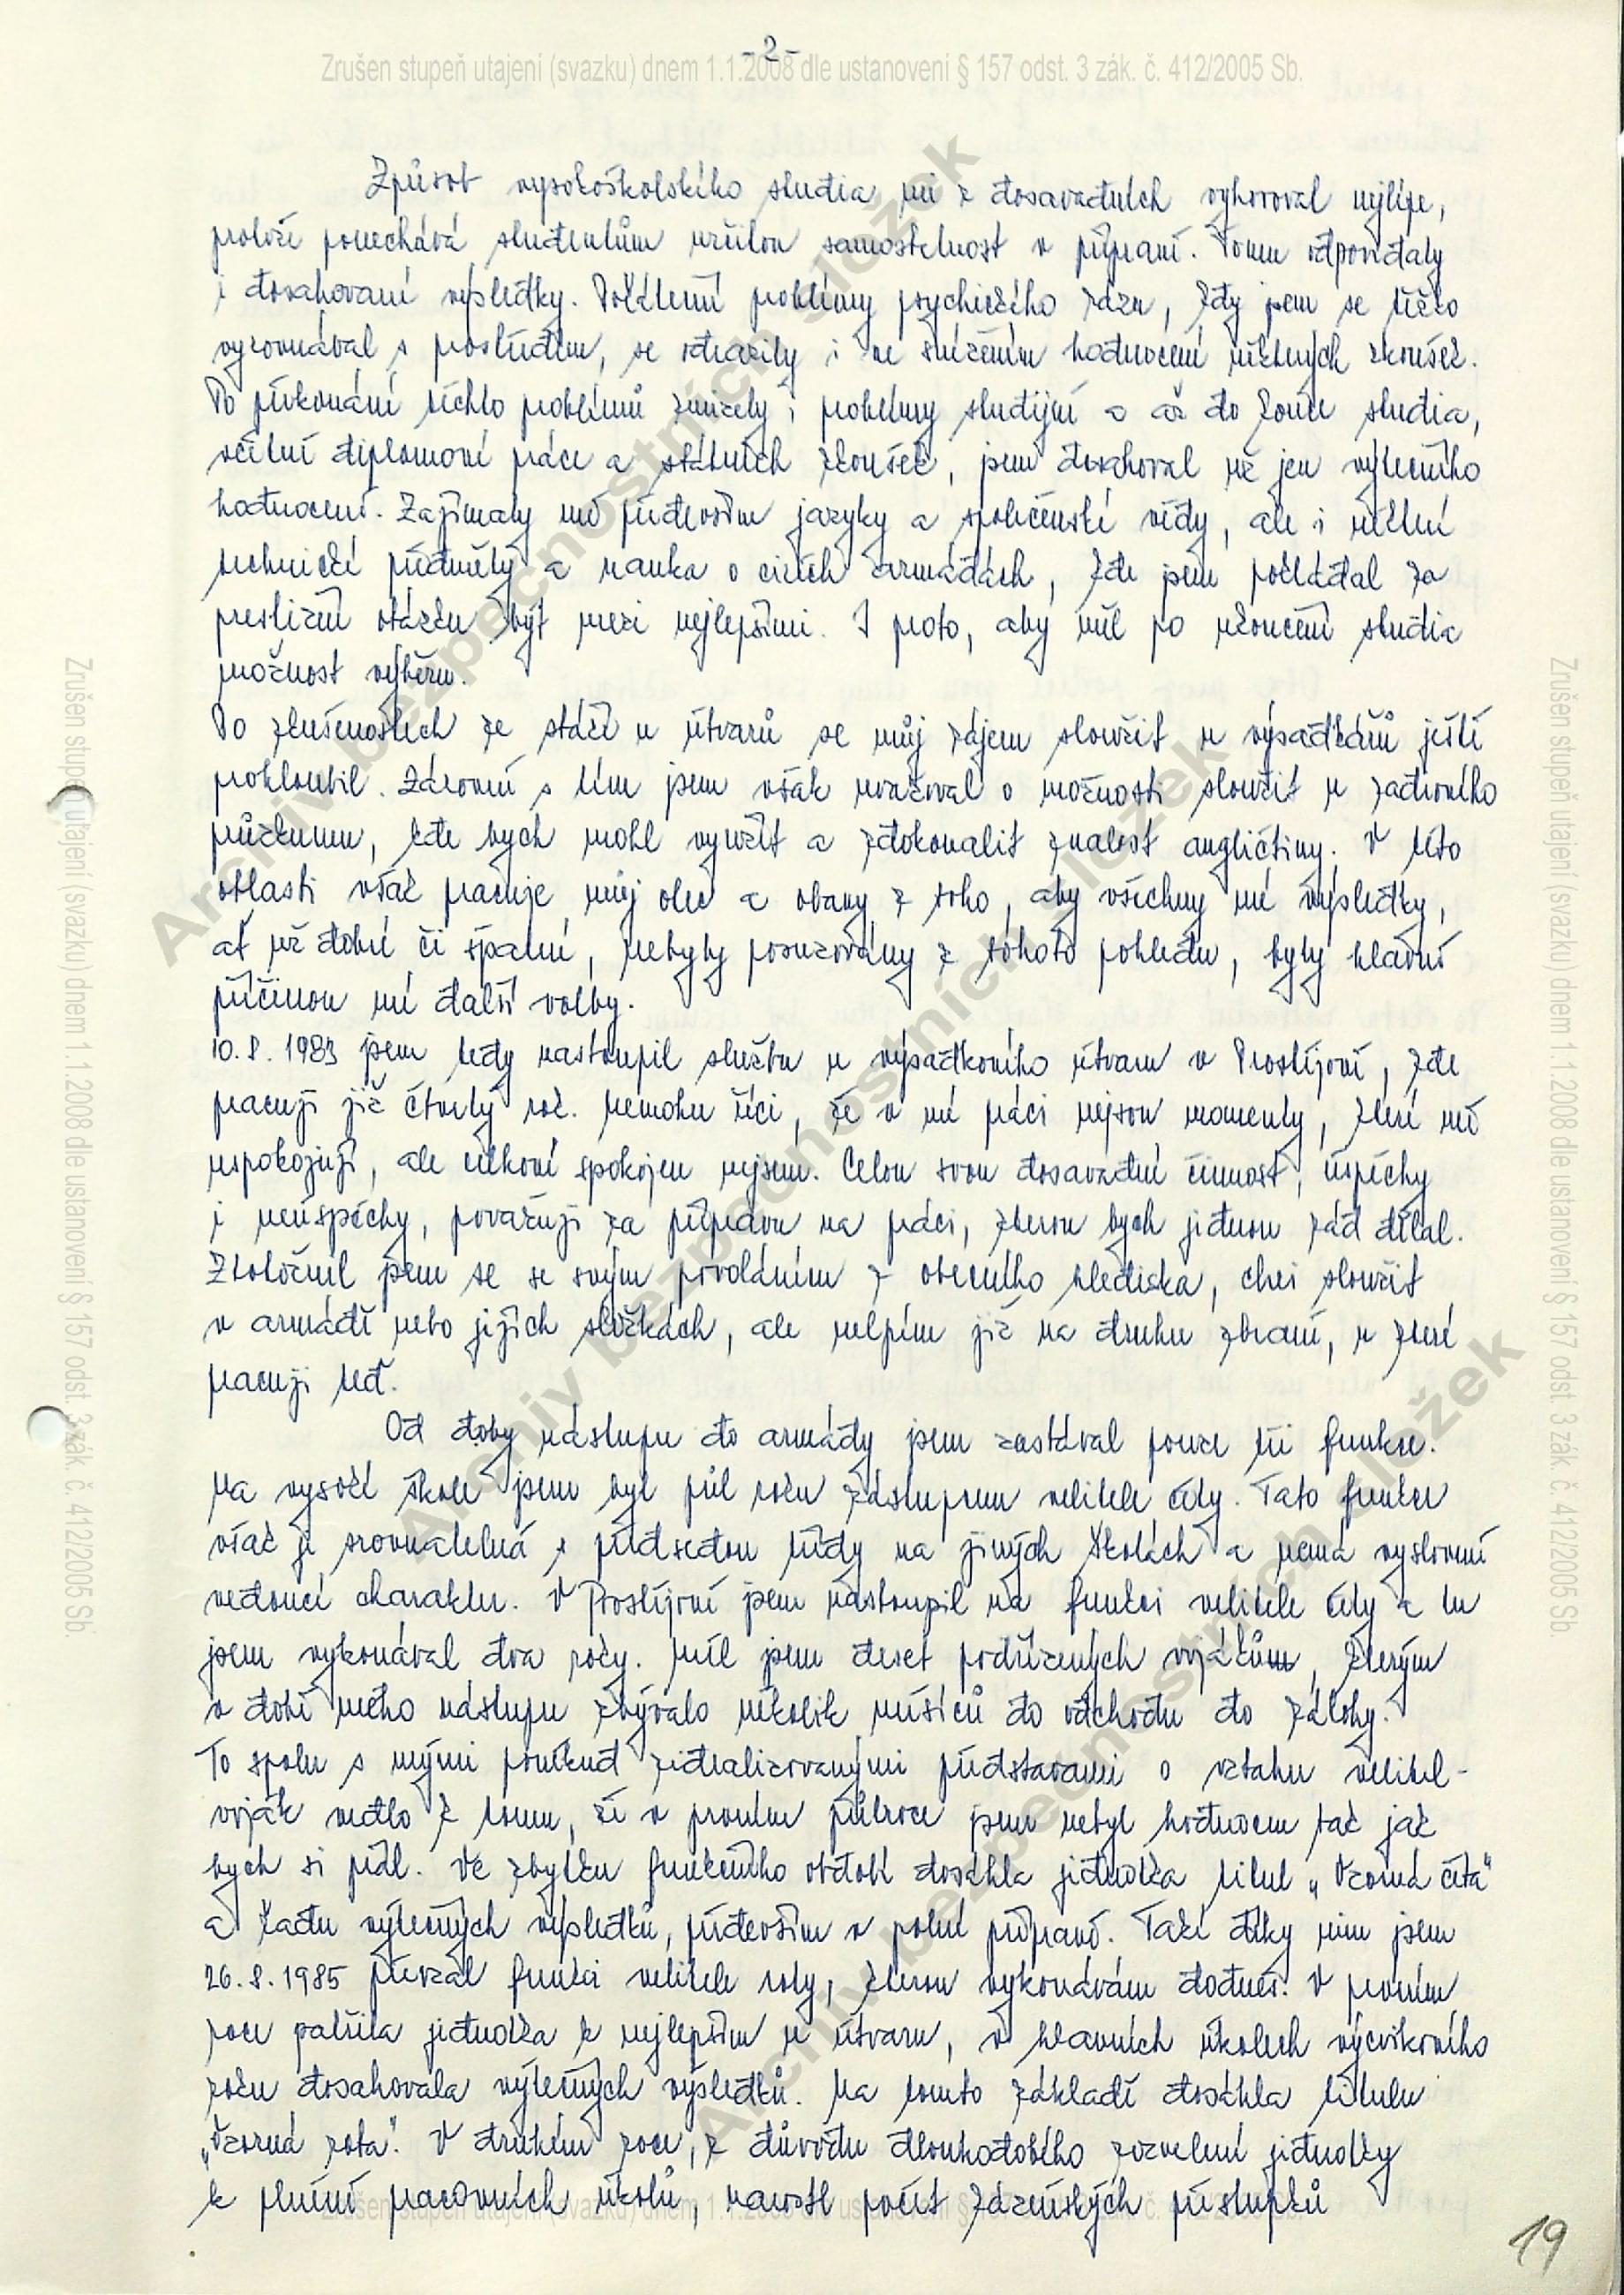 - 2 -
Zrušen stupeň utajení (svazku) dnem 1.1.2008 dle ustanovení § 157 odst. 3 zák. č. 412/2005 Sb.
Způsob vysokoškolského studia mi z dosavadních vyhovoval nejlépe,
protože ponechává studentům určitou samostatnost v přípravě. Tomu odpovídaly
i dosahované výsledky. Počáteční problémy psychického rázu, kdy jsem se těžko
vyrovnával s prostředím, se odrazily i ve sníženém hodnocení některých zkoušek.
Po překonání těchto problémů zmizely i problémy studijní a až do konce studia,
včetně diplomové práce a státních zkoušek, jsem dosahoval už jen výtečného
hodnocení. Zajímaly mě především jazyky a společenské vědy, ale i některé
technické předměty a nauka o cizích armádách, kde jsem pokládal za
prestižní otázku být mezi nejlepšími. I proto, aby měl po ukončení studia
možnost výběru.
Po zkušenostech ze stáží u útvarů se můj zájem sloužit u výsadkářů ještě
prohloubil. Zároveň s tím jsem však uvažoval o možnosti sloužit u radiového
průzkumu, kde bych mohl využít a zdokonalit znalost angličtiny. V této
oblasti však pracuje můj otec a obavy z toho, aby všechny mé výsledky,
ať už dobré či špatné, nebyly posuzovány z tohoto pohledu, byly hlavní
příčinou mé další volby.
10.8.1983 jsem tedy nastoupil službu u výsadkového útvaru v Prostějově, kde
pracuji již čtvrtý rok. Nemohu říci, že v mé práci nejsou momenty, které mě
uspokojují, ale celkově spokojen nejsem. Celou svou dosavadní činnost, úspěchy
i neúspěchy, považuji za přípravu na práci, kterou bych jednou rád dělal.
Ztotožnil jsem se se svým povoláním z obecného hlediska, chci sloužit
v armádě nebo jejích složkách, ale nelpím již na druhu zbraně, u které
pracuji teď.
Od doby nástupu do armády jsem zastával pouze tři funkce.
Na vysoké škole jsem byl půl roku zástupcem velitele čety. Tato funkce
však je srovnatelná s předsedou třídy na jiných školách a nemá vysloveně
vedoucí charakter. V Prostějově jsem nastoupil na funkci velitele čety a tu
jsem vykonával dva roky. Měl jsem deset podřízených vojáků, kterým
v době mého nástupu zbývalo několik měsíců do odchodu do zálohy.
To spolu s mými poněkud zidealizovanými představami o vztahu velitel-
voják vedlo k tomu, že v prvním půlroce jsem nebyl hodnocen tak jak
bych si přál. Ve zbytku funkčního období dosáhla jednotka titul „Vzorná četa"
a řadu výtečných výsledků, především v polní přípravě. Také díky nim jsem
26.8.1985 převzal funkci velitele roty, kterou vykonávám dodnes. V prvním
roce patřila jednotka k nejlepším u útvaru, v hlavních úkolech výcvikového
roku dosahovala výtečných výsledků. Na tomto základě dosáhla titulu
„Vzorná rota". V druhém roce, z důvodu dlouhodobého rozvelení jednotky
k plnění pracovních úkolů, narostl počet kázeňských přestupků
Zrušen stupeň utajení (svazku) dnem 1.1.2008 dle ustanovení § 157 odst. 3 zák. č. 412/2005 Sb.
19
Zrušen stupeň utajení (svazku) dnem 1.1.2008 dle ustanovení § 157 odst. 3 zák. č. 412/2005 Sb.
Zrušen stupeň utajení (svazku) dnem 1.1.2008 dle ustanovení § 157 odst. 3 zák. č. 412/2005 Sb.
Archiv bezpečnostních složek
Archiv bezpečnostních složek
Archiv bezpečnostních složek